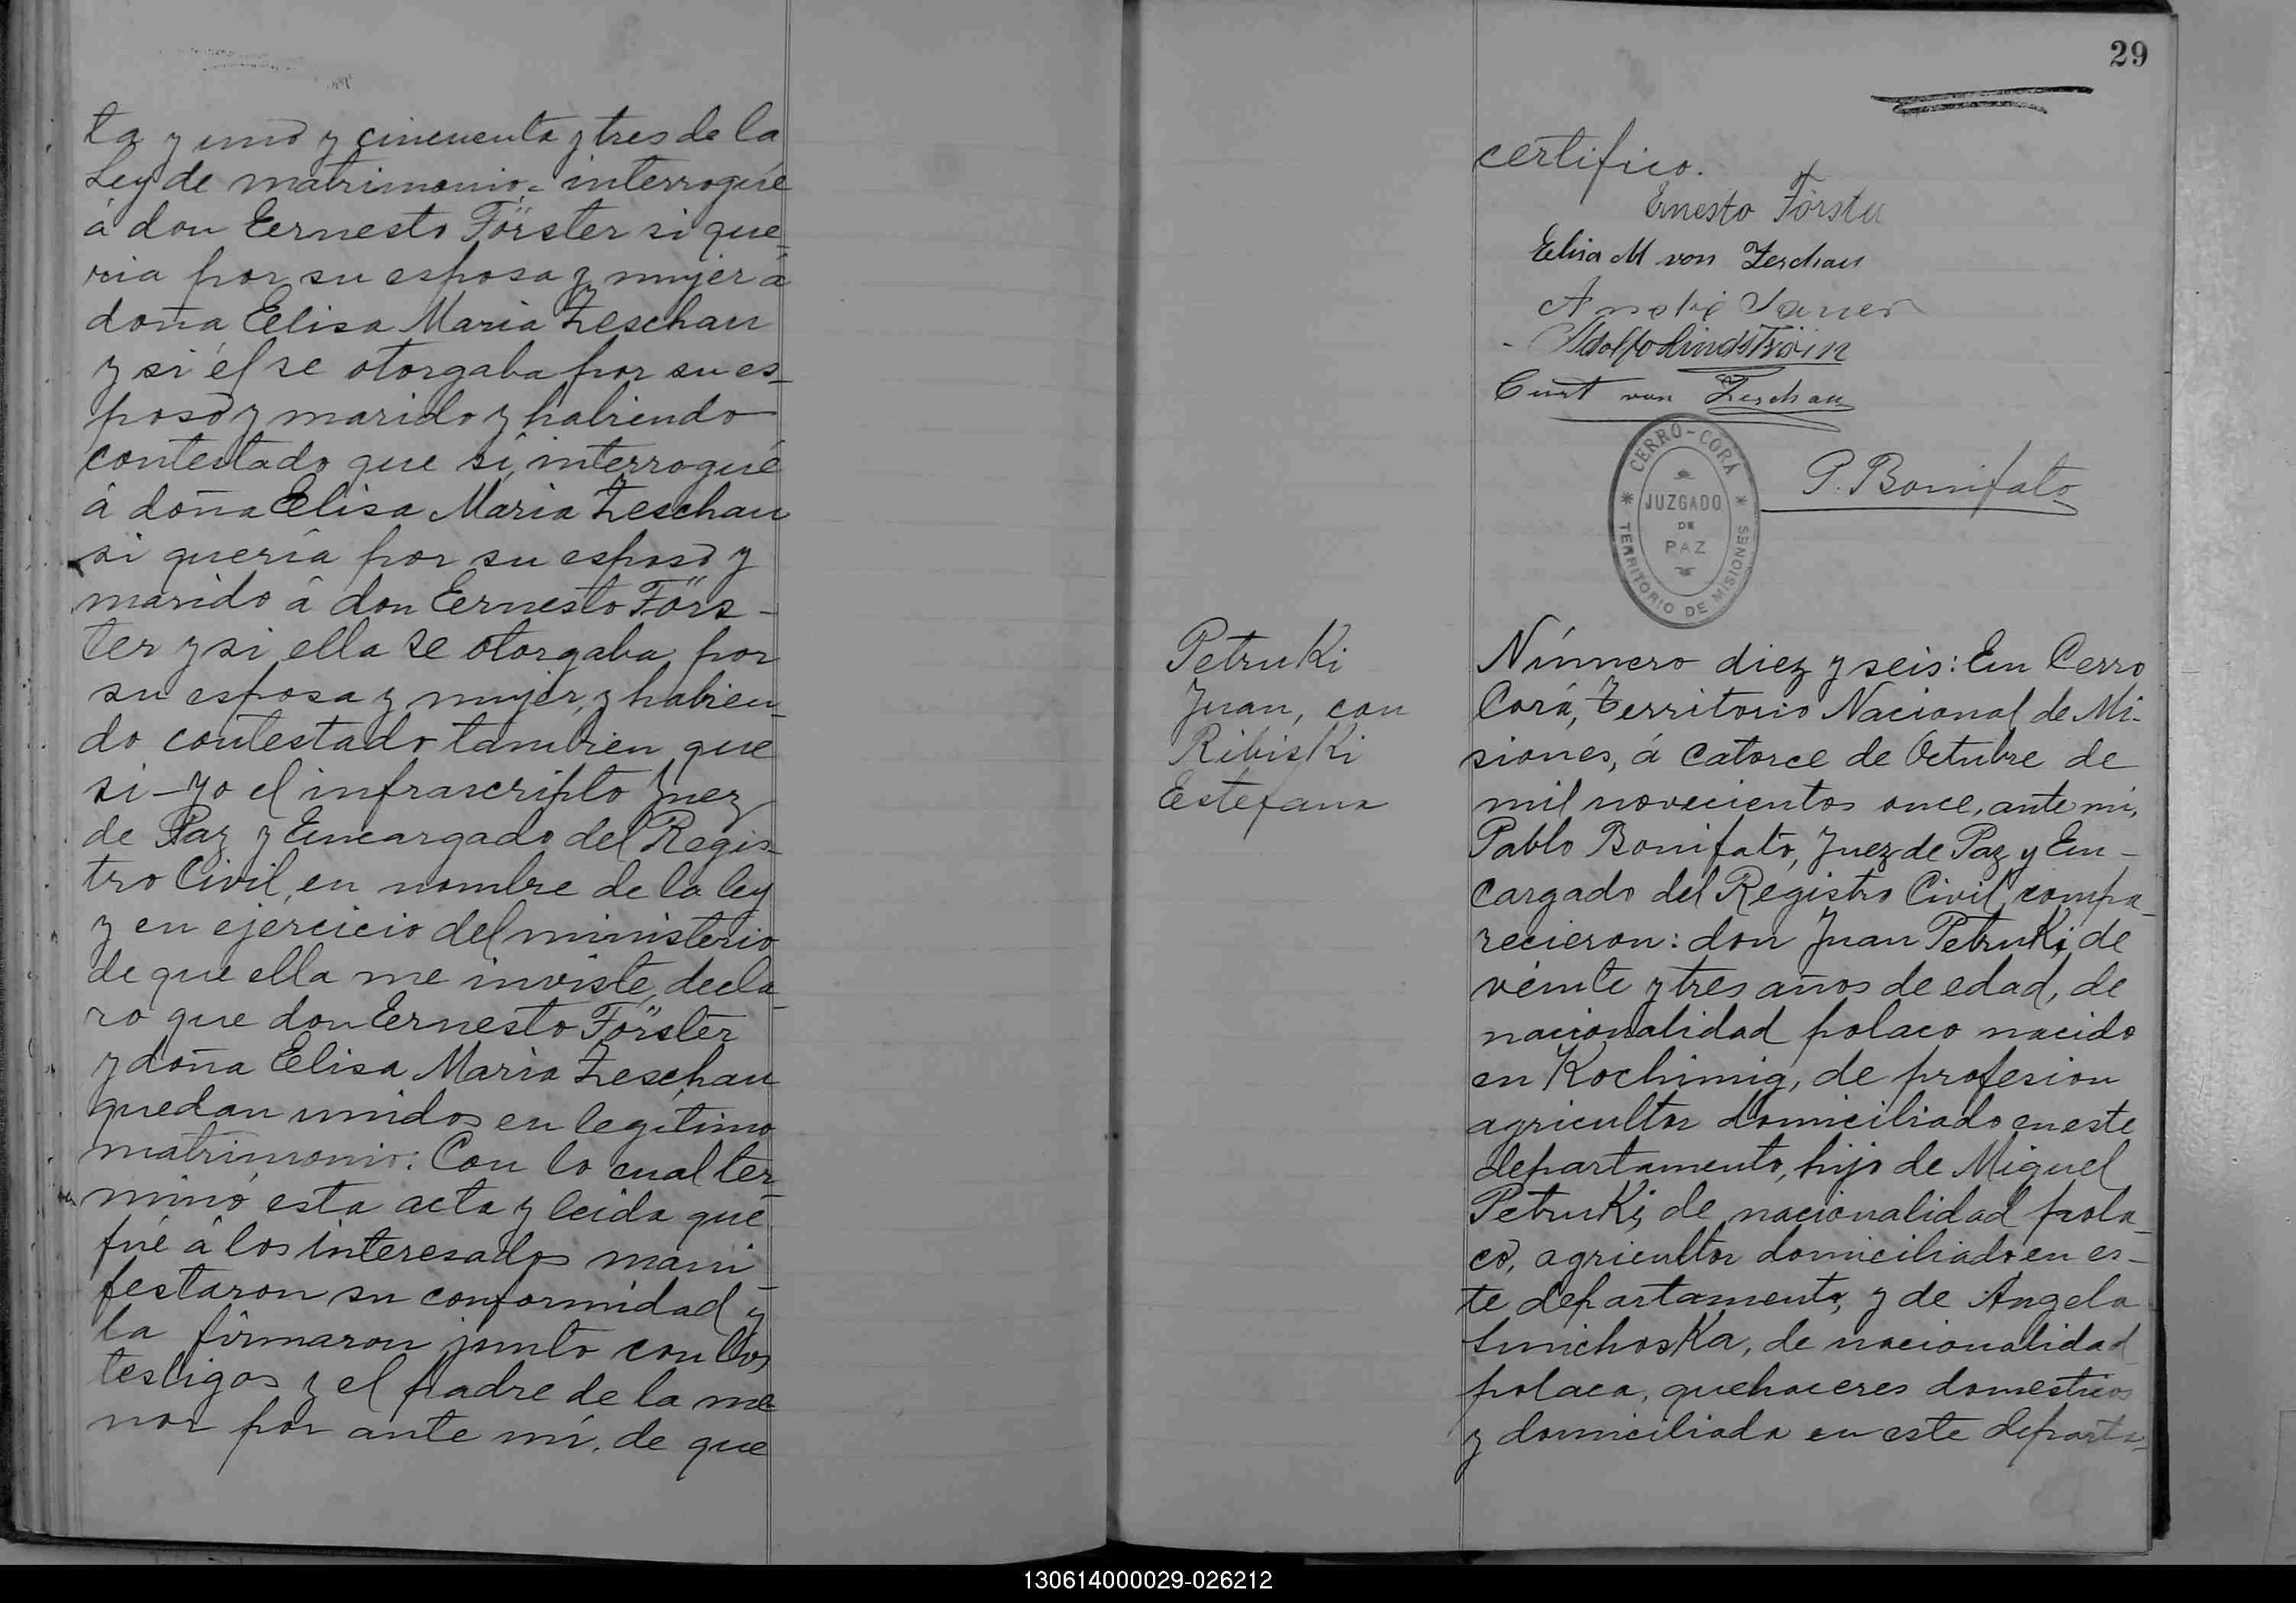 ta y uno y cincuenta y tres de la
Ley de matrimonio, interrogué
á don Eernesto Förster si que-
ria por su esposa y mujer á
doña Elisa Maria Zeschau
y si él se otorgaba por su es-
poso y marido y habiendo
contestado que si, interrogué
á doña Elisa Maria Zeschau
si quería por su esposo y
marido á don Eernesto Förs-
ter y si ella se otorgaba por
su esposa y mujer, y habien-
do contestado tambien que
si - yo el infrascripto Juez
de Paz y Encargado del Regis-
tro Civil, en nombre de la ley
y en ejercicio del ministerio
de que ella me inviste, decla-
ro que don Eernesto Förster
y doña Elisa Maria Zeschau
quedan unidos en legítimo
matrimonio: Con lo cual ter-
minó esta acta y leida que
fué á los interesados mani-
festaron su conformidad y
la firmaron junto con los
testigos y el padre de la me-
nor por ante mí, de que
29
certifico.
Ernesto Förster
Elisa M von Zeschau
Adolfo Lindström
Curt von Zeschau
P. Bonifato
CERRO-CORÁ
JUZGADO
DE
PAZ
TERRITORIO DE MISIONES
Petruki
Juan, con
Ribiski
Estefana
Número diez y seis: En Cerro
Corá, Territorio Nacional de Mi-
siones, á catorce de Octubre de
mil novecientos once, ante mi,
Pablo Bonifato, Juez de Paz y En-
cargado del Registro Civil, compa-
recieron: don Juan Petruki, de
veinte y tres años de edad, de
nacionalidad polaco nacido
en Kochimig, de profesion
agricultor domiciliado en este
departamento, hijo de Miguel
Petruki, de nacionalidad pola-
co, agricultor domiciliado en es-
te departamento, y de Angela
Smichoska, de nacionalidad
polaca, quehaceres domesticos
y domiciliada en este departa-
130614000029-026212